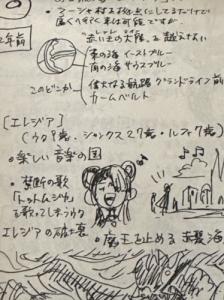 ・フーシャ村を拠点にしてるだけで
遠くへ行く事は可能ですが
"赤い土の大陸"を越えない
2年前
東の海 イーストブルー
南の海 サウスブルー
偉大なる航路 グランドライン前
カームベルト
このどこか
[エレジア]
(ウタ9歳・シャンクス27歳・ルフィ7歳)
・楽しい音楽の国
・禁断の歌
「トットムジカ」
を歌ってしまうウタ
エレジアの破壊
・魔王を止める 赤髪海